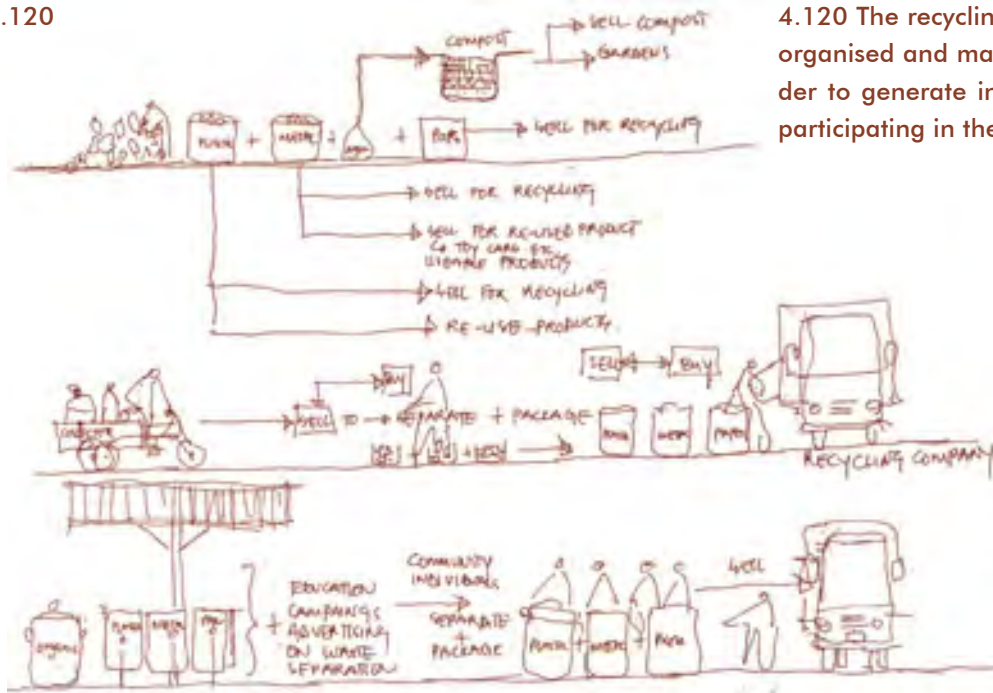 .120
4.120 The recyclin
organised and ma
der to generate in
participating in the
COMPOST
SELL COMPOST
GARDENS
PLASTIC + METAL + + PAPER
SELL FOR RECYCLING
SELL FOR RECYCLING
SELL FOR RE-USED PRODUCT
TOY CARS
USEABLE PRODUCTS
SELL FOR RECYCLING
RE-USE-PRODUCTS
BUY
SELL TO SEPARATE + PACKAGE
BUY
METAL
RECYCLING COMPANY
ORGANIC
PLASTIC METAL
+ EDUCATION
CAMPAINGS
ADVERTICING
ON WASTE
SEPARATION
COMMUNITY
INDIVIDUALS
SEPARATE
+
PACKAGE
PLASTIC + METAL + PAPER
SELL